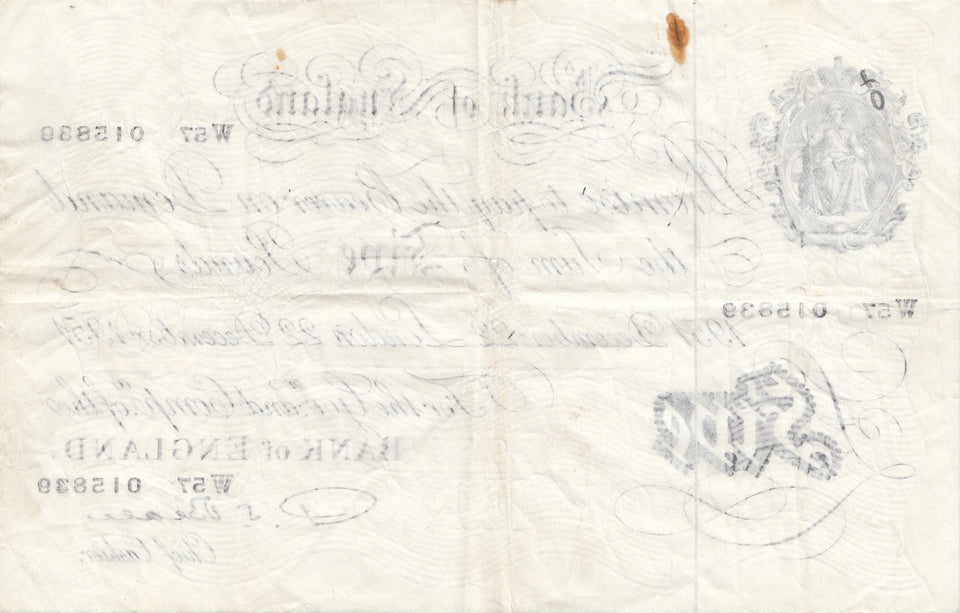 Bank of England
W57 015839
Promise to pay the Bearer on Demand
the Sum of Five Pounds
W57 015839
1951 December 22 London 22 December 1951
For the Gov.r and Comp.a of the
BANK of ENGLAND.
£ Five
W57 015839
P. S. Beale
Chief Cashier.